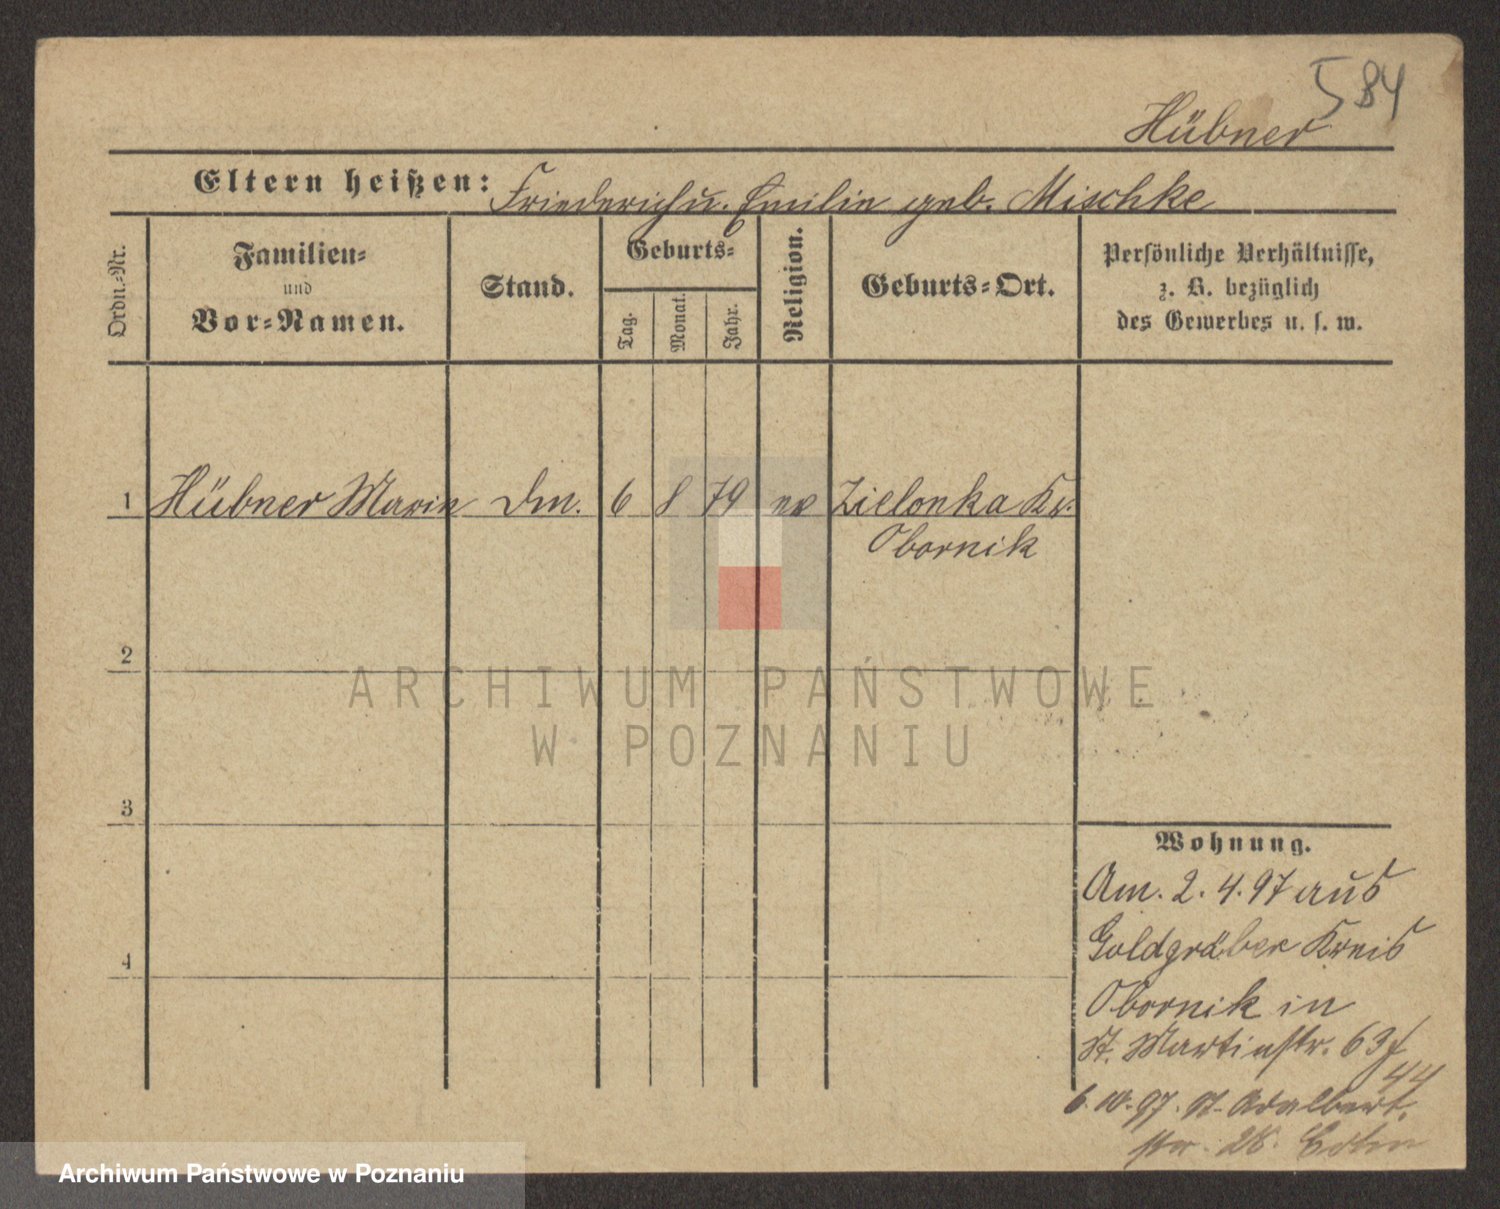 584
Hübner
Eltern heißen: Friederich u. Emilie geb. Mischke
Ordn.-Nr.
Familien-
und
Vor-Namen.
Stand.
Geburts-
Tag.
Monat.
Jahr.
Religion.
Geburts-Ort.
Persönliche Verhältnisse,
z. B. bezüglich
des Gewerbes u. s. w.
1 Hübner Marie Dm. 6 8 79 ev Zielonka Kr.
Obornik
2
3
4
Wohnung.
Am. 2. 4. 97 aus
Goldgräber Kreis
Obornik in
St. Martinstr. 63
44
6. 10. 97. St. Adalbert.
str. 28.
ARCHIWUM PAŃSTWOWE
W POZNANIU
Archiwum Państwowe w Poznaniu